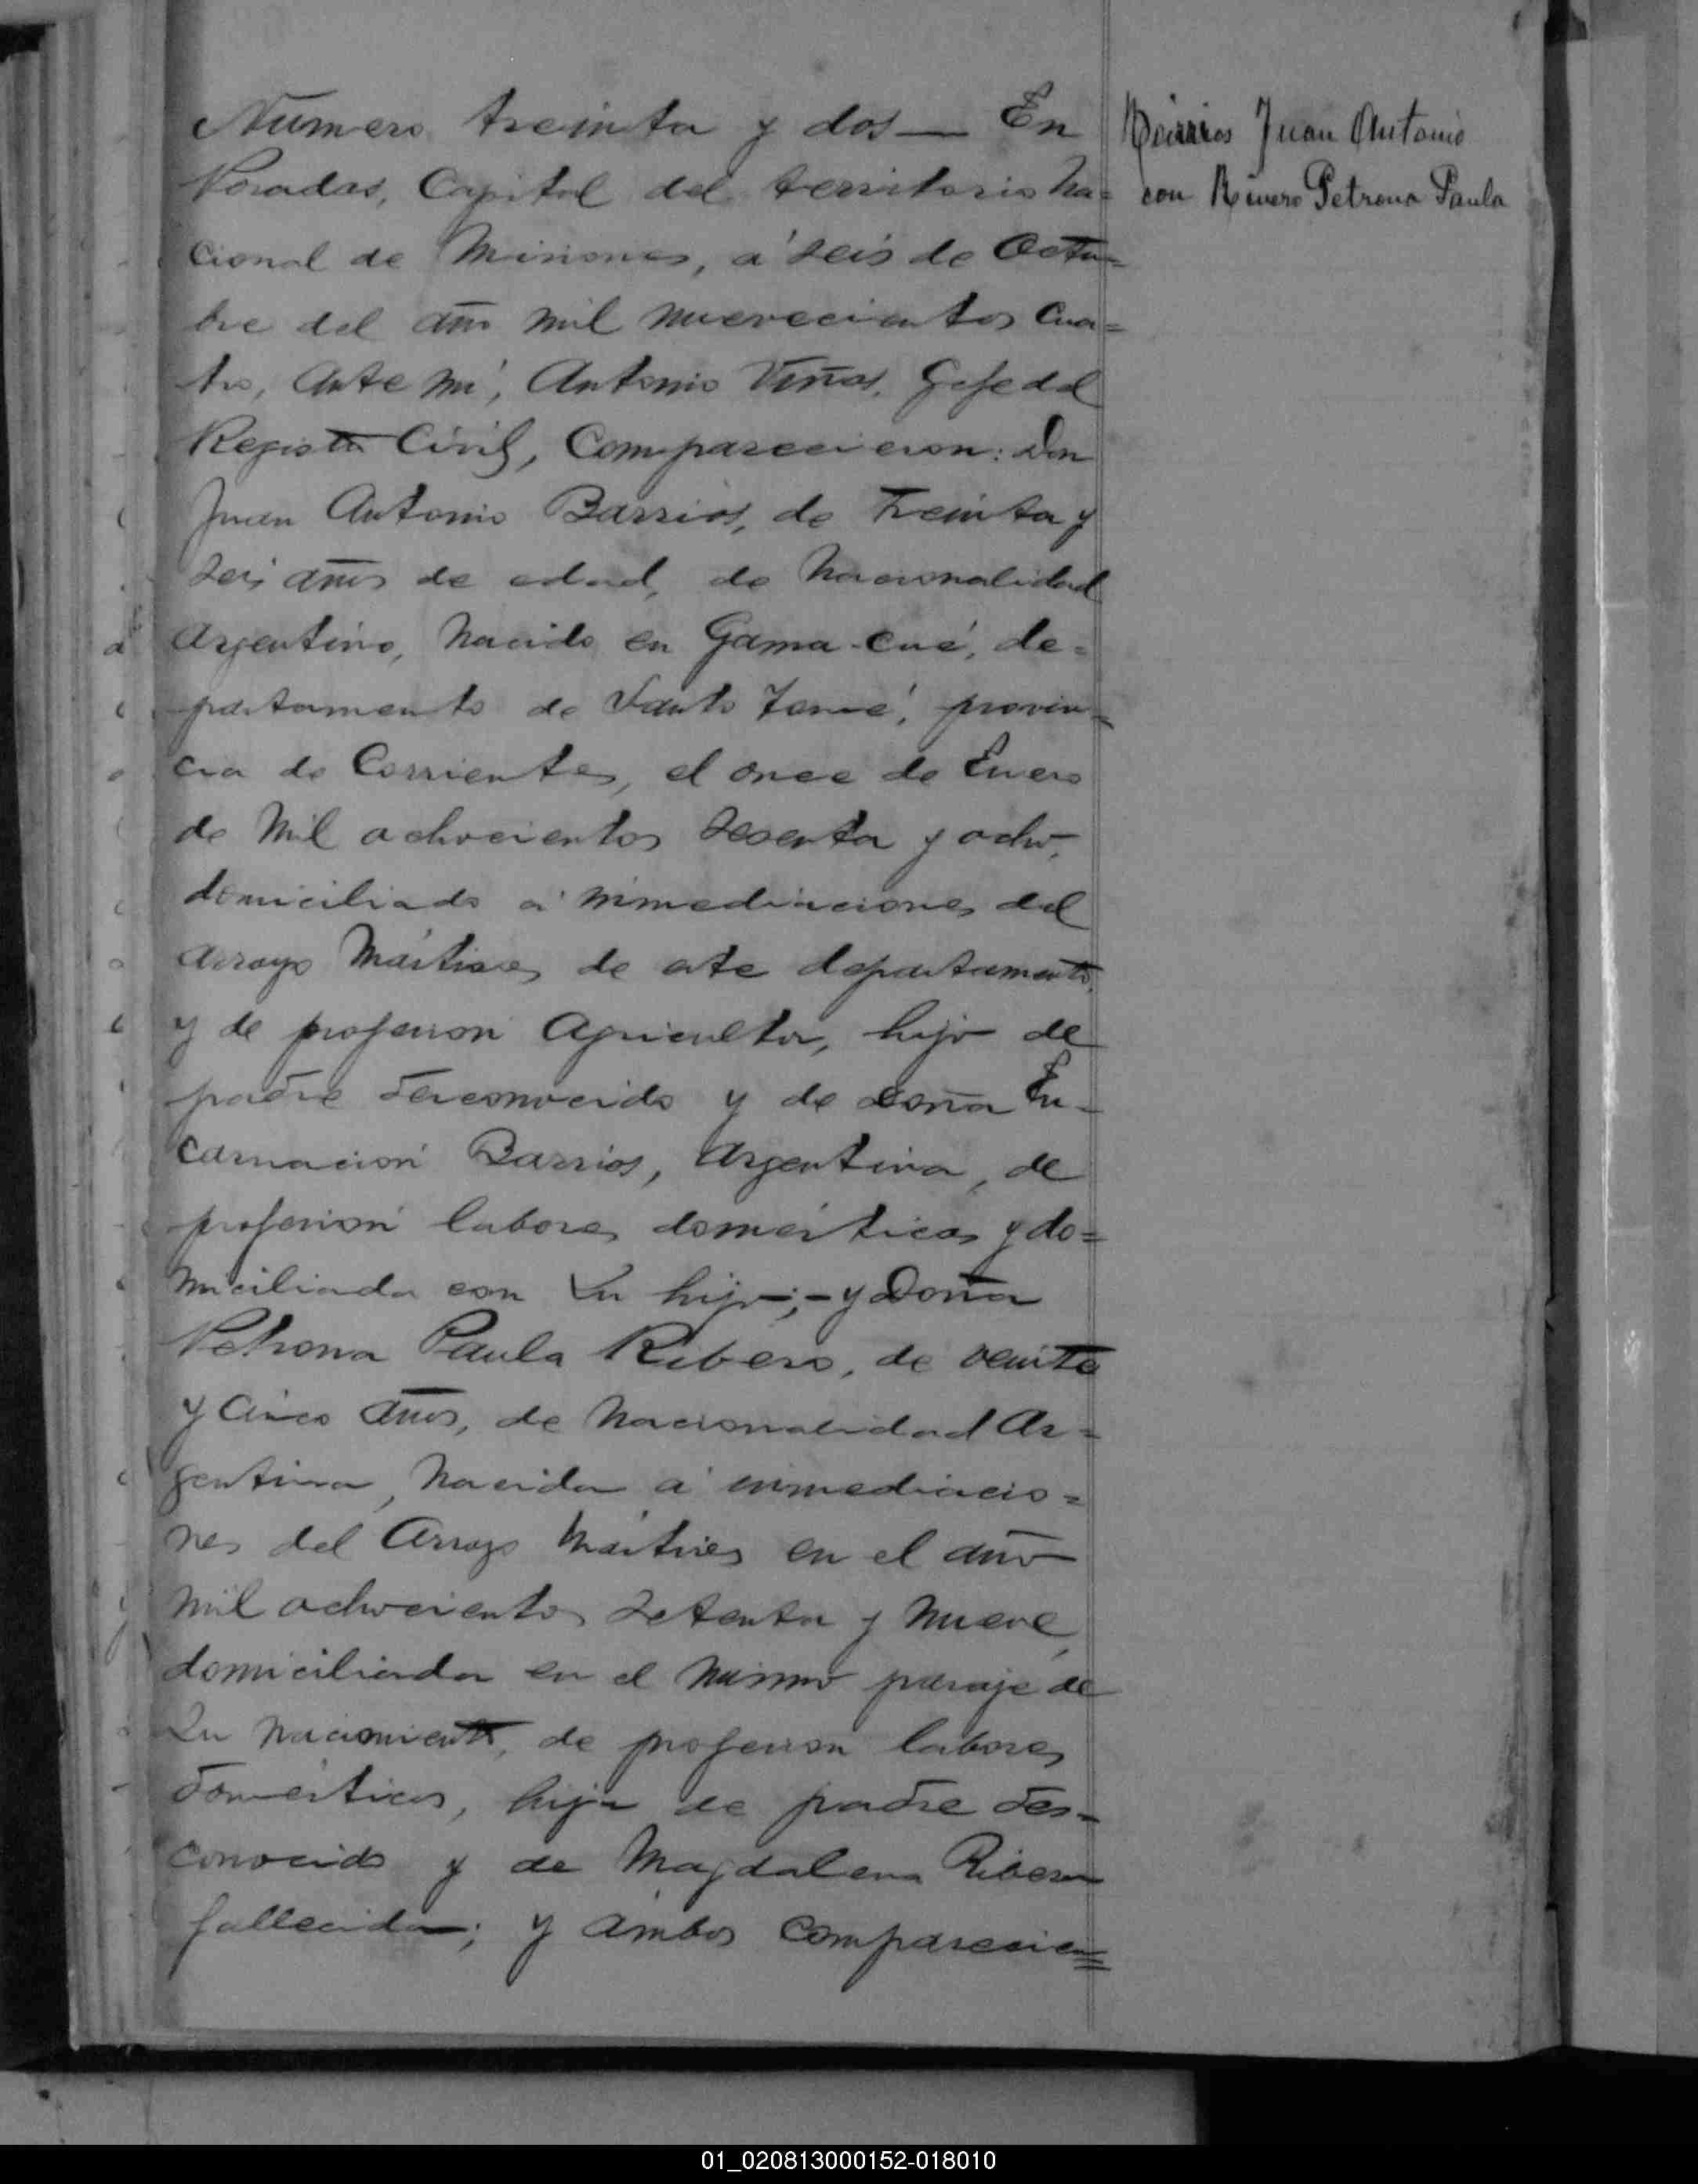 Número treinta y dos — En
Posadas, Capital del territorio Na=
cional de Misiones, á seis de Octu=
bre del año mil nuevecientos cua=
tro, ante mí, Antonio Viñas, Gefe del
Registro Civil, Comparecieron: Don
Juan Antonio Barrios, de treinta y
seis años de edad, de nacionalidad
Argentino, nacido en Gama-cué, de=
partamento de Santo Tomé, provin=
cia de Corrientes, el once de Enero
de mil ochocientos sesenta y ocho,
domiciliado á inmediaciones del
arroyo Mártires de este departamento,
y de profesion agricultor, hijo de
padre desconocido y de doña En-
carnación Barrios, Argentina, de
profesión labores domésticas y do=
miciliada con su hijo; - y Doña
Petrona Paula Ribero, de veinte
y cinco años, de nacionalidad Ar=
gentina, nacida á inmediacio=
nes del Arroyo Mártires en el año
mil ochocientos setenta y nueve,
domiciliada en el mismo paraje de
su nacimiento, de profesion labores
domésticas, hija de padre des=
conocido y de Magdalena Ribero
fallecida; y ambos comparecien=
Barrios Juan Antonio
con Rivero Petrona Paula
01_020813000152-018010